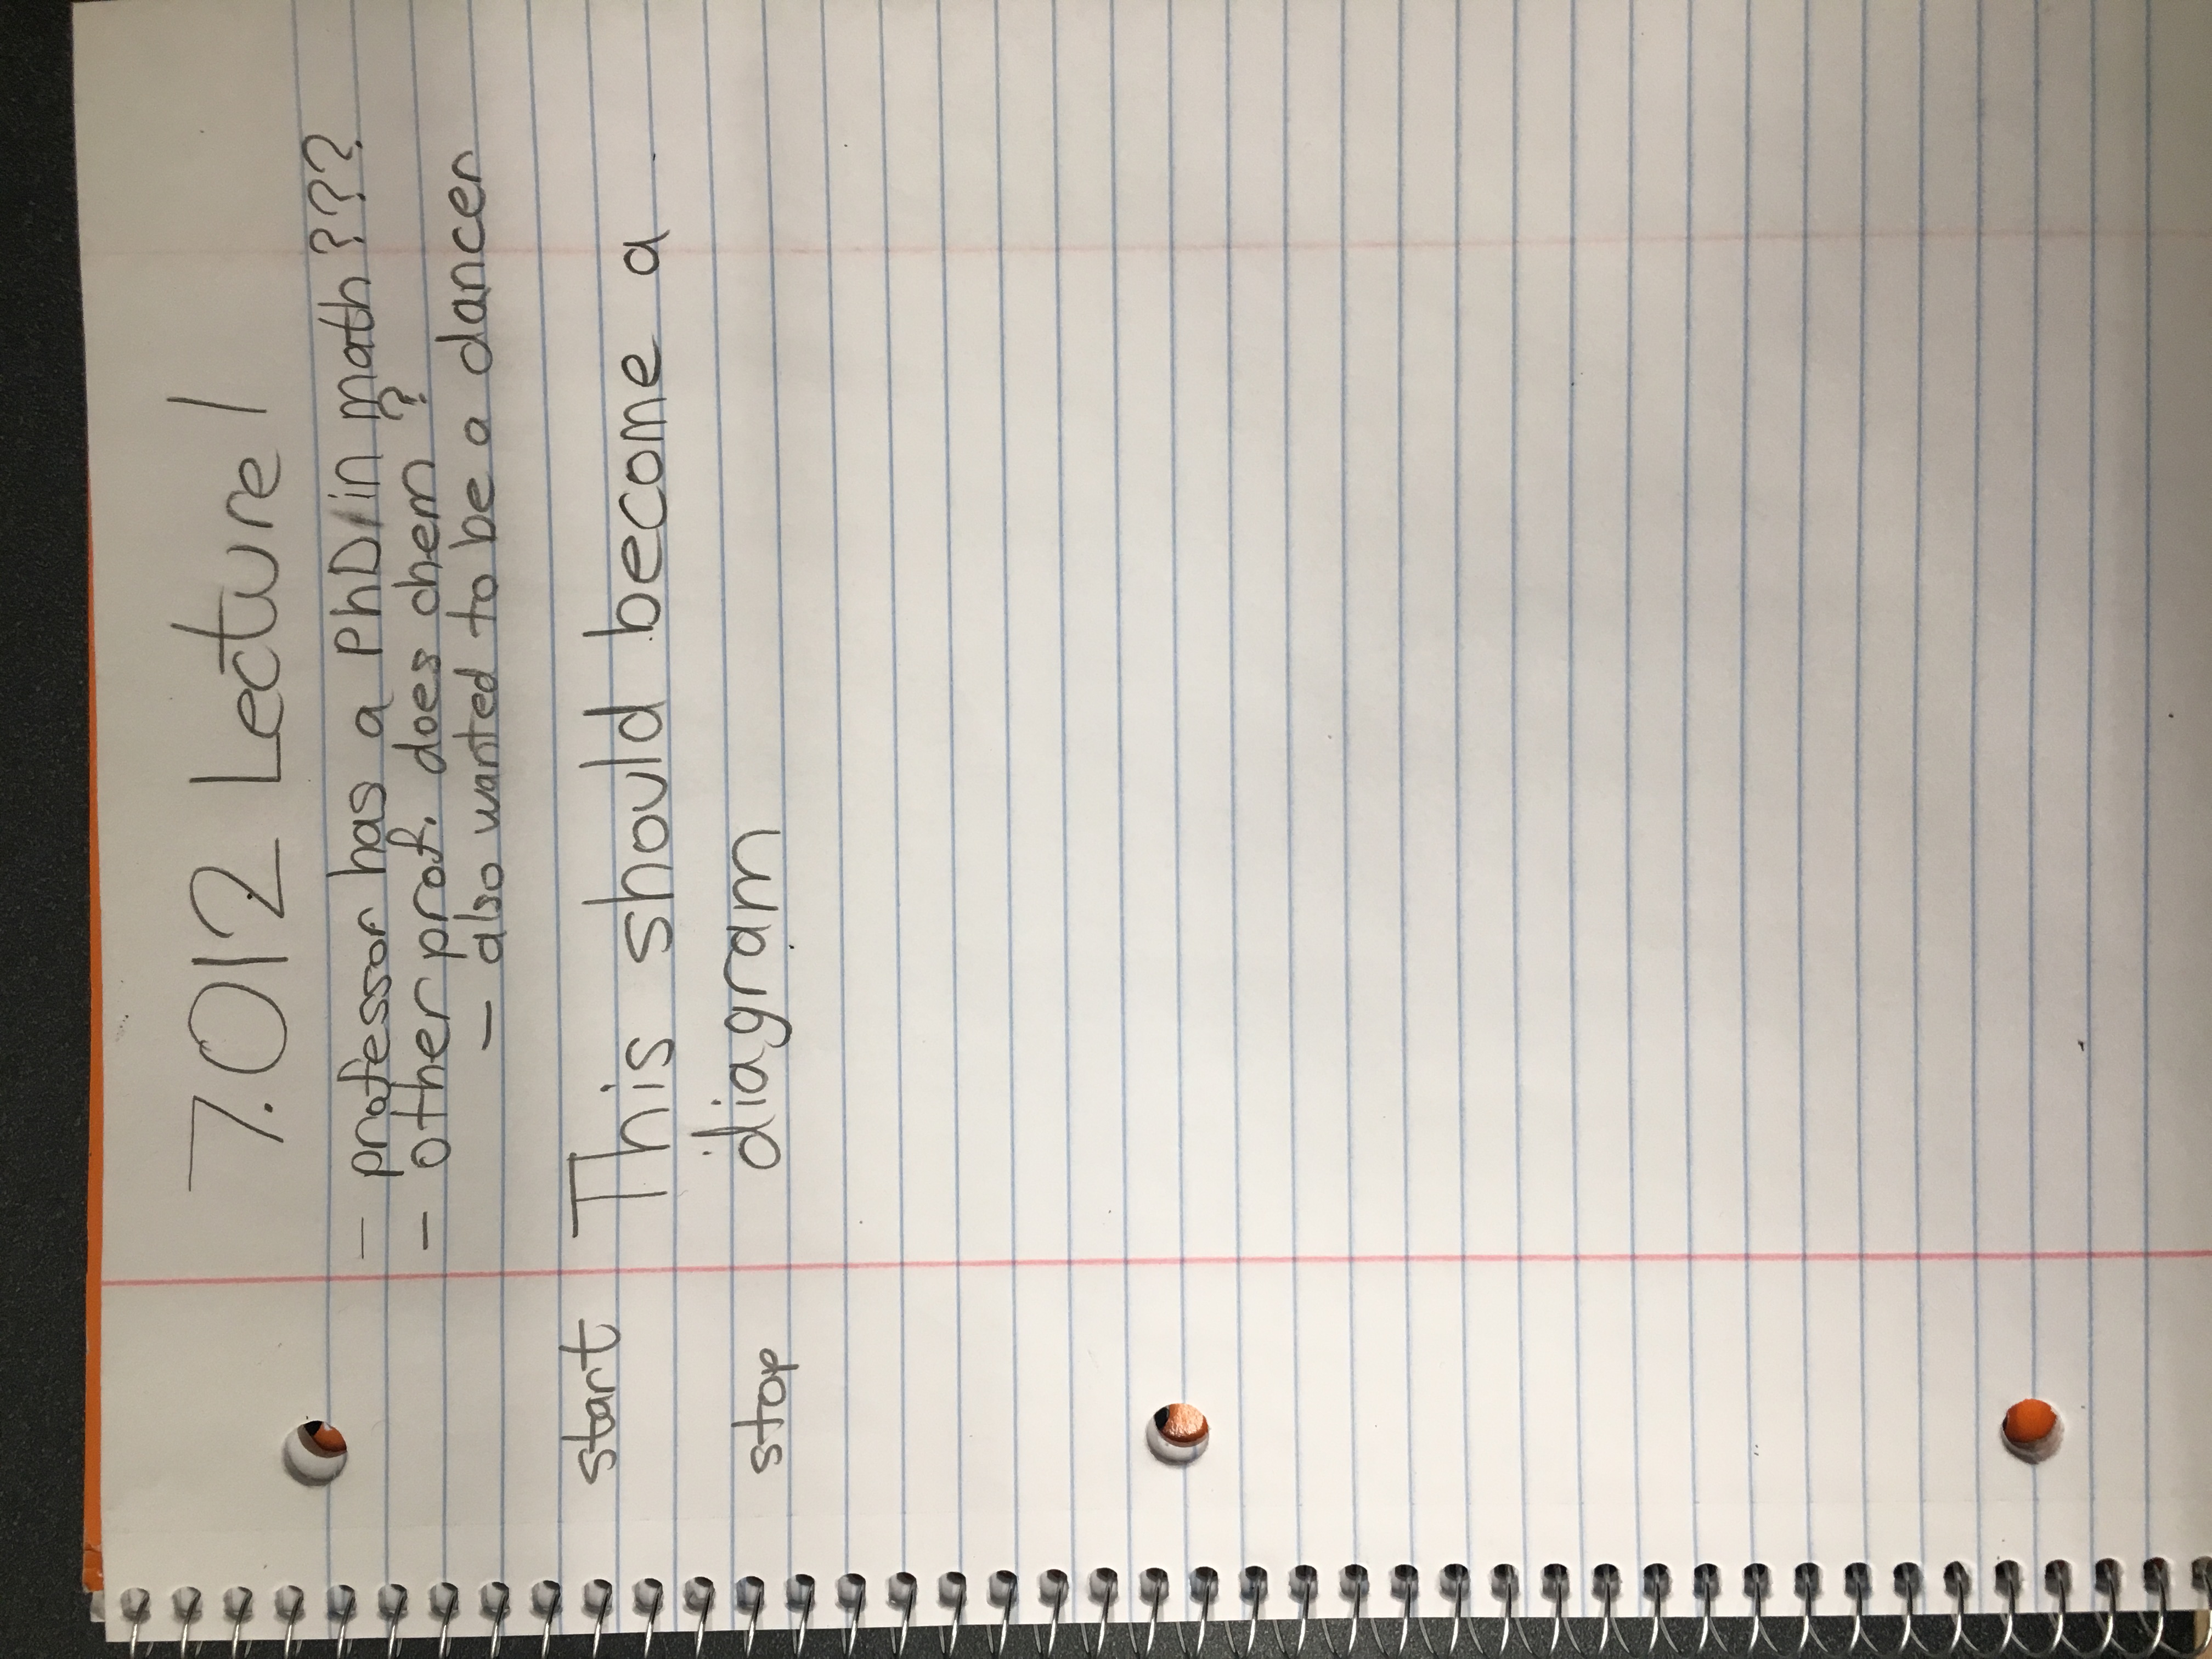 7.012 Lecture 1
- professor has a PhD in math???
- other prof. does chem?
- also wanted to be a dancer
start This should become a
stop diagram